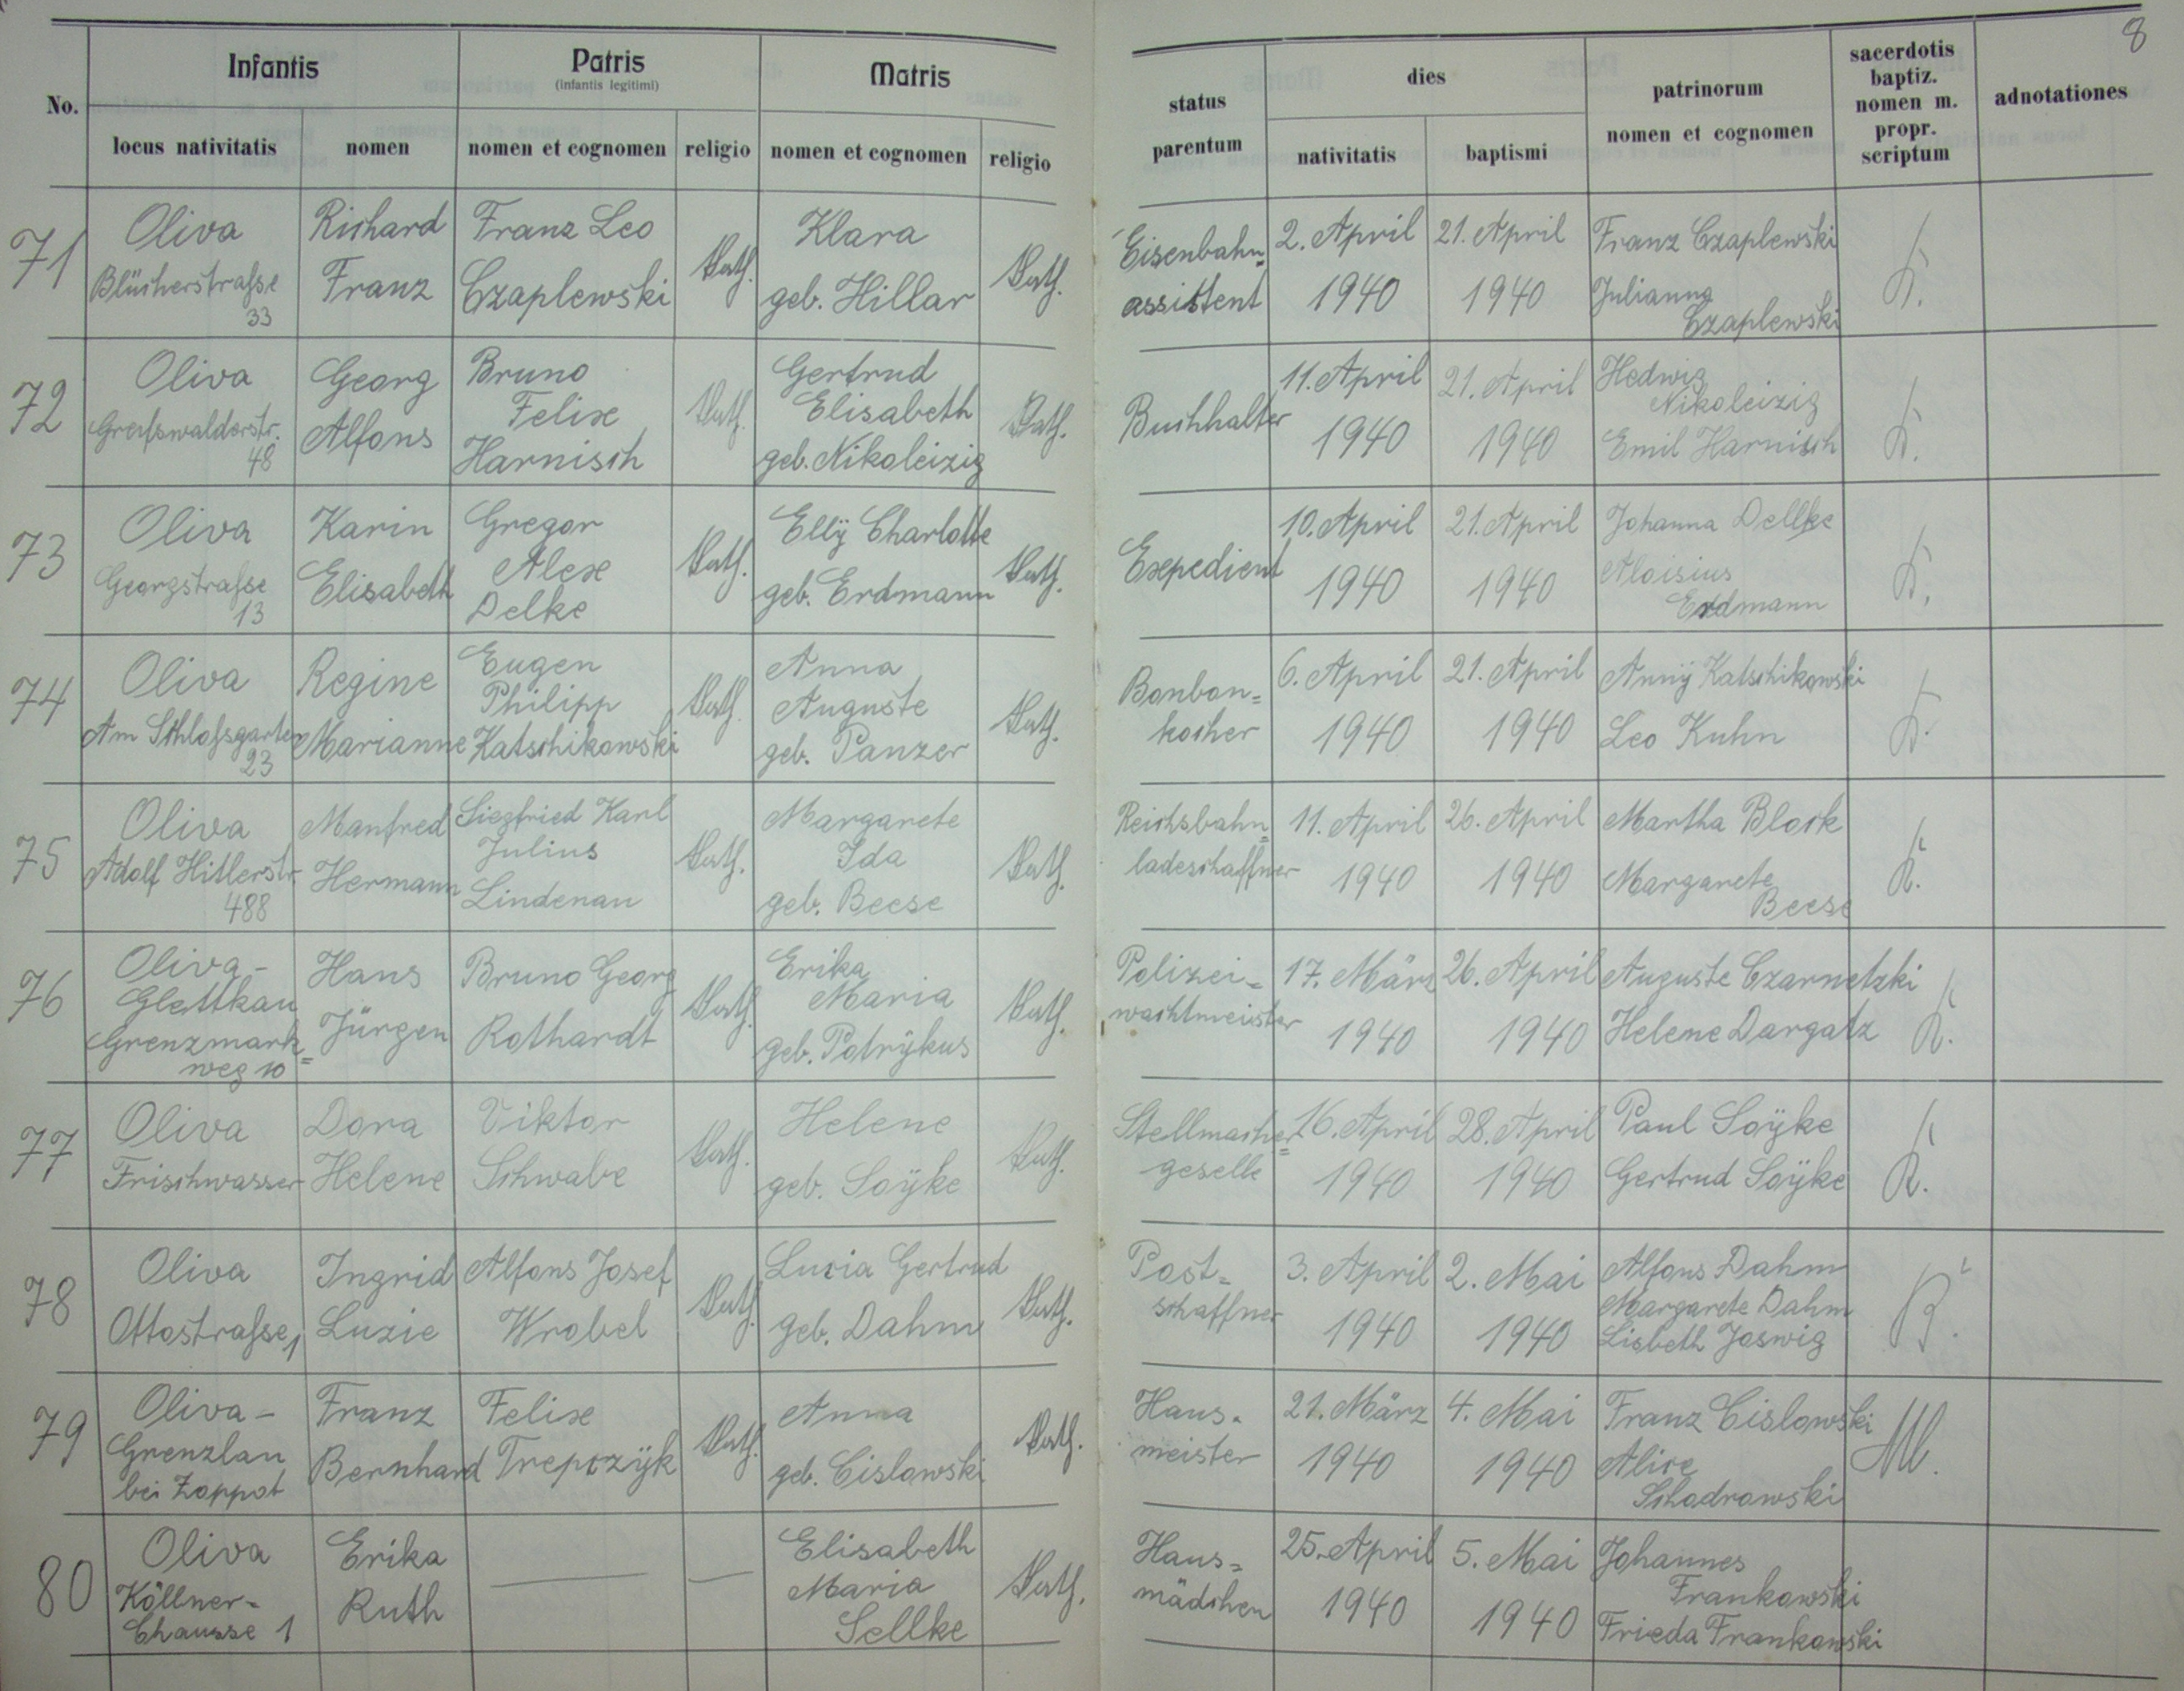 8
No.
Infantis
Patris
(infantis legitimi)
Matris
status
parentum
dies
patrinorum
nomen et cognomen
sacerdotis
baptiz.
nomen m.
propr.
scriptum
adnotationes
locus nativitatis
nomen
nomen et cognomen
religio
nomen et cognomen
religio
nativitatis
baptismi
71
Oliva
Blücherstraſse
33
Richard
Franz
Franz Leo
Czaplewski
kath.
Klara
geb. Hillar
kath.
Eisenbahn=
assistent
2. April
1940
21. April
1940
Franz Czaplewski
Julianna
Czaplewski
K.
72
Oliva
Greifswalderstr.
48
Georg
Alfons
Bruno
Felix
Harnisch
kath.
Gertrud
Elisabeth
geb. Nikoleizig
kath.
Buchhalter
11. April
1940
21. April
1940
Hedwig
Nikoleizig
Emil Harnisch
K.
73
Oliva
Georgstraſse
13
Karin
Elisabeth
Gregor
Alex
Delke
kath.
Elly Charlotte
geb. Erdmann
kath.
Expedient
10. April
1940
21. April
1940
Johanna Dellke
Aloisius
Erdmann
K.
74
Oliva
Am Schloſsgarten
23
Regine
Marianne
Eugen
Philipp
Katschikowski
kath.
Anna
Auguste
geb. Panzer
kath.
Bonbon=
kocher
6. April
1940
21. April
1940
Anny Katschikowski
Leo Kuhn
K.
75
Oliva
Adolf Hitlerstr.
488
Manfred
Hermann
Siegfried Karl
Julius
Lindenau
kath.
Margarete
Ida
geb. Beese
kath.
Reichsbahn=
ladeschaffner
11. April
1940
26. April
1940
Martha Block
Margarete
Beese
K.
76
Oliva-
Glettkau
Grenzmark=
weg 10
Hans
Jürgen
Bruno Georg
Rothardt
kath.
Erika
Maria
geb. Potrykus
kath.
Polizei=
wachtmeister
17. März
1940
26. April
1940
Auguste Czarnetzki
Helene Dargatz
K.
77
Oliva
Frischwasser
Dora
Helene
Viktor
Schwabe
kath.
Helene
geb. Soyke
kath.
Stellmacher=
geselle
16. April
1940
28. April
1940
Paul Soyke
Gertrud Soyke
K.
78
Oliva
Ottostraſse 1
Ingrid
Luzie
Alfons Josef
Wrobel
kath.
Lucia Gertrud
geb. Dahm
kath.
Post=
schaffner
3. April
1940
2. Mai
1940
Alfons Dahm
Margarete Dahm
Lisbeth Joswig
79
Oliva-
Grenzlau
bei Zoppot
Franz
Bernhard
Felix
Trepczyk
kath.
Anna
geb. Cislowski
kath.
Haus=
meister
21. März
1940
4. Mai
1940
Franz Cislowski
Alice
Schadrowski
M.
80
Oliva
Köllner-
Chausse 1
Erika
Ruth
Elisabeth
Maria
Sellke
kath.
Haus=
mädchen
25. April
1940
5. Mai
1940
Johannes
Frankowski
Frieda Frankowski